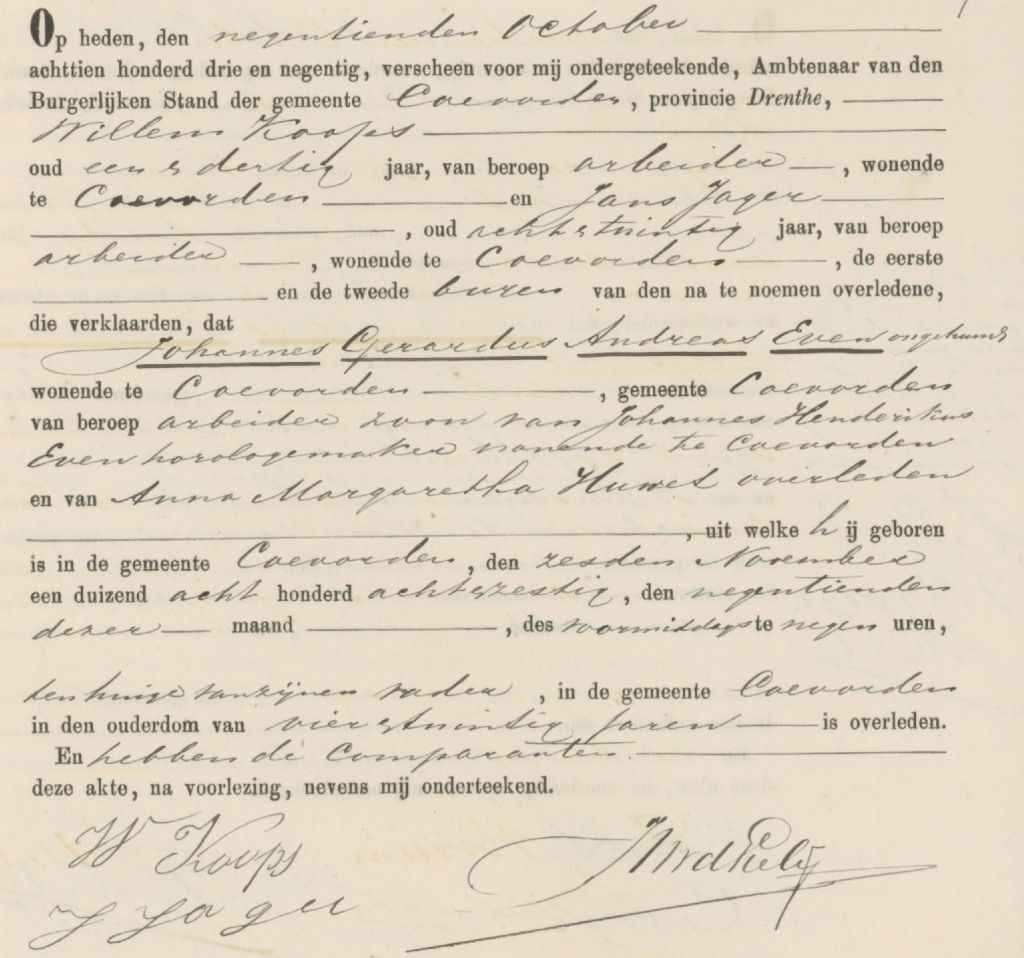 Op heden, den negentienden October
achttien honderd drie en negentig, verscheen voor mij ondergeteekende, Ambtenaar van den
Burgerlijken Stand der gemeente Coevorden, provincie Drenthe,
Willem Koops
oud een & dertig jaar, van beroep arbeider, wonende
te Coevorden en Jans Jager
, oud acht & twintig jaar, van beroep
arbeider, wonende te Coevorden, de eerste
en de tweede buren van den na te noemen overledene,
die verklaarden, dat
Johannes Gerardus Andreas Even ongehuwd
wonende te Coevorden, gemeente Coevorden
van beroep arbeider zoon van Johannes Henderikus
Even horologemaker wonende te Coevorden
en van Anna Margaretha overleden
, uit welke hij geboren
is in de gemeente Coevorden, den zesden November
een duizend acht honderd acht & zestig, den negentienden
dezer maand, des voormiddags te negen uren,
ten huize van zijnen vader, in de gemeente Coevorden
in den ouderdom van vier & twintig jaren is overleden.
En hebben de Comparanten
deze akte, na voorlezing, nevens mij onderteekend.
W Koops
J Jager